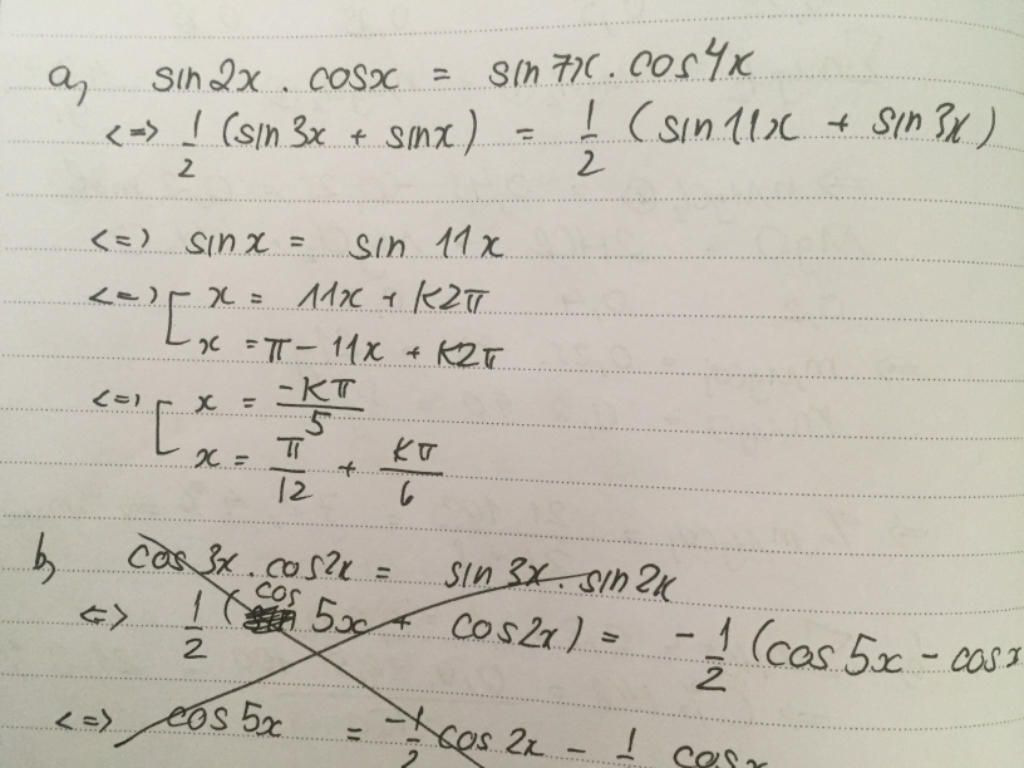 a, sin2x . cosx = sin7x . cos4x
<=> 1/2 (sin3x + sinx) = 1/2 (sin11x + sin3x)
<=> sinx = sin 11x
<=> [ x = 11x + K2π
x = π - 11x + K2π
<=> [ x = -Kπ/5
x = π/12 + Kπ/6
b, cos3x . cos2x = sin3x . sin2x
<=> 1/2 (cos 5x + cos2x) = -1/2 (cos5x - cosx
<=> cos5x = -1/2 cos2x - 1/ cosx